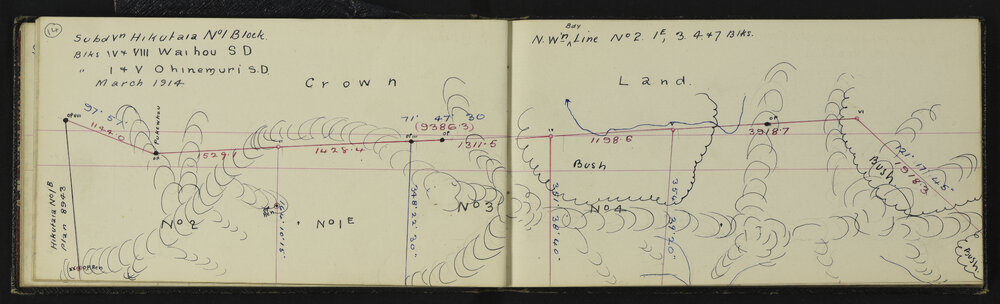 14
Subdvn Hikutaia No1 Block.
Blks IV & VIII Waihou S D
" I & V Ohinemuri S.D.
March 1914
Crown
N. Wn Bdy Line No 2. 1E, 3. 4 & 7 Blks.
Land.
97. 57.
1144.0
Pukewhau
1529.1
1428.4
71° 47' 30
(9386.3)
1311.5
1198.6
3918.7
VI
121° 17' 45"
1918.3
Bush
Bush
Hikutaia No 1B
Plan 8943
No 2
No 1E
348° 22' 30"
No 3
351° 38' 40"
No 4
354° 39' 20"
Bush